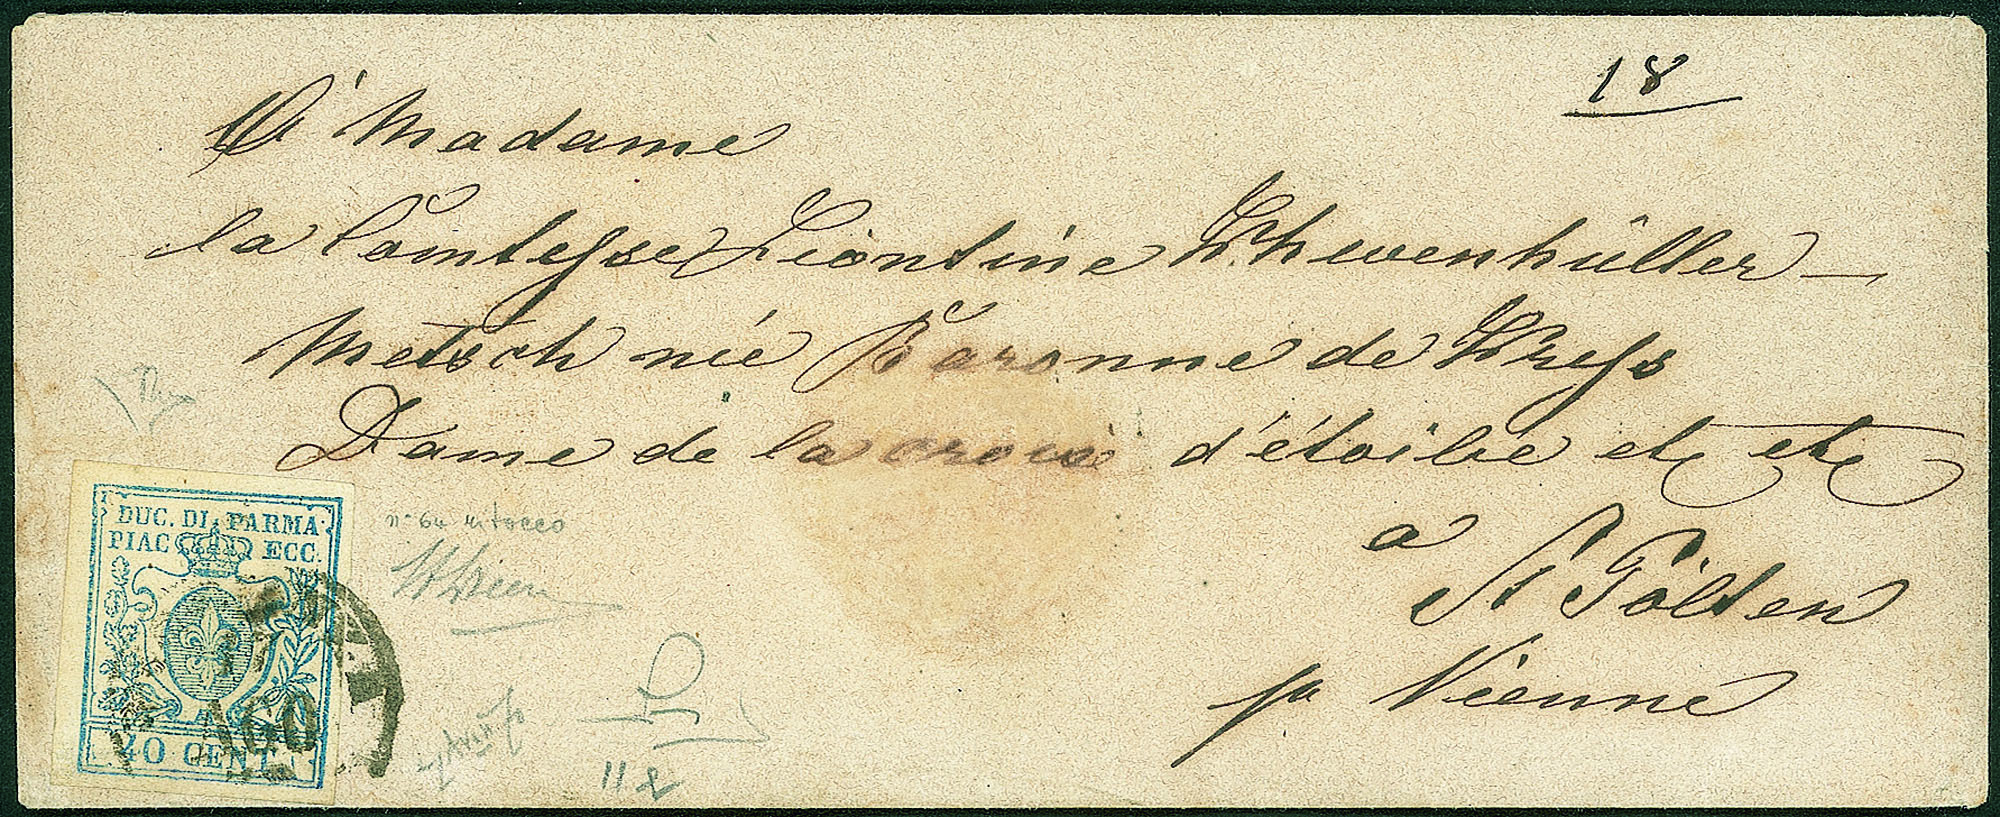 18
A Madame
la Comtesse Léontine Khevenhüller—
Metsch née Baronne de Kress
Dame de la croix d'étoilée etc etc
a
St Pölten
pr Vienne
DUC. DI PARMA
PIAC ECC.
AGO
40 CENT